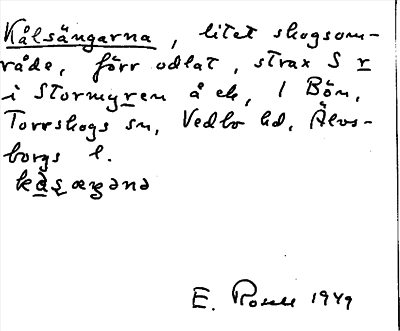 Kålsängarna, litet skogsom-
råde, förr odlat, strax S r
i Stormyren å ek, 1 Bön,
Torrskogs sn, Vedbo hd, Älvs-
borgs l.
E. 1949